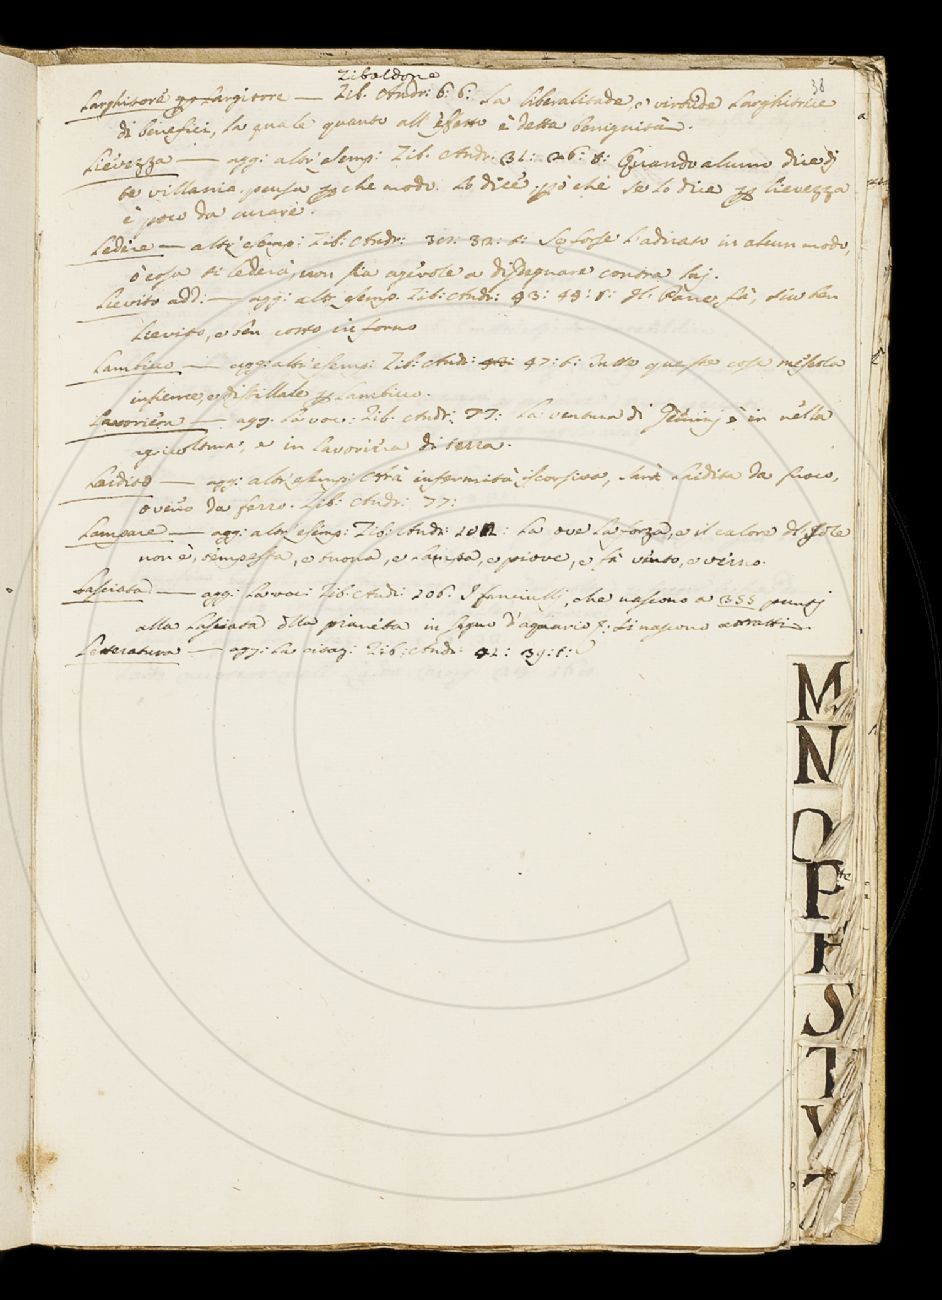 Zibaldone
38
Larghitore per Largitore — Zib. Andr: 6: 6: La liberalitade, e virtude Larghitrice
di benefici, la quale quanto all' effetto è detta benignità.
Lievezza — agg: altr' esemp: Zib: Andr: 31: 26: t: Quando alcuno dice di
te villania, pensa per che modo. Lo dice però chè se lo dice per lievezza
è poco da curare.
Ledire — altr' esemp: Zib: Andr: 32: t: Se fosse Ladirato in alcun modo,
ò cosa ti lederà, non fia agevole a disegnare contra lui.
Lievito add: — agg: altr' esemp. Zib: Andr: 43: 44: t: Il Pane, sia ben
Lievito, e ben cotto in forno
Lambicco — agg: altr' esemp: Zib: Andr: 47: t: Tutte queste cose mescola
insieme, e distillale per Lambicco.
Lavoriera — agg. La voc: Zib: Andr: 77: La ventura di Gemini è in nella
agricoltura, e in lavoriera di terra.
Laidito — agg: altr' esemp: infermità iscorsiva, sarà Laidita da fuoco,
overo da ferro. Zib: Andr: 77:
Lampare — agg: altr' esemp: Zib: Andr: La ove La forza, e il calore del sole
non è, tempesta, e tuona, e Lampa, e piove, e fa vento, e verno.
Lasciata — agg: La voc: Zib: Andr: 106: I fanciulli, che nascono a 355 punti
alla Lasciata della pianeta in segno d'aquario
Letteratura — agg: La Zib: Andr: 41: 39: t:
M
N
O
P
R
S
T
V
Z